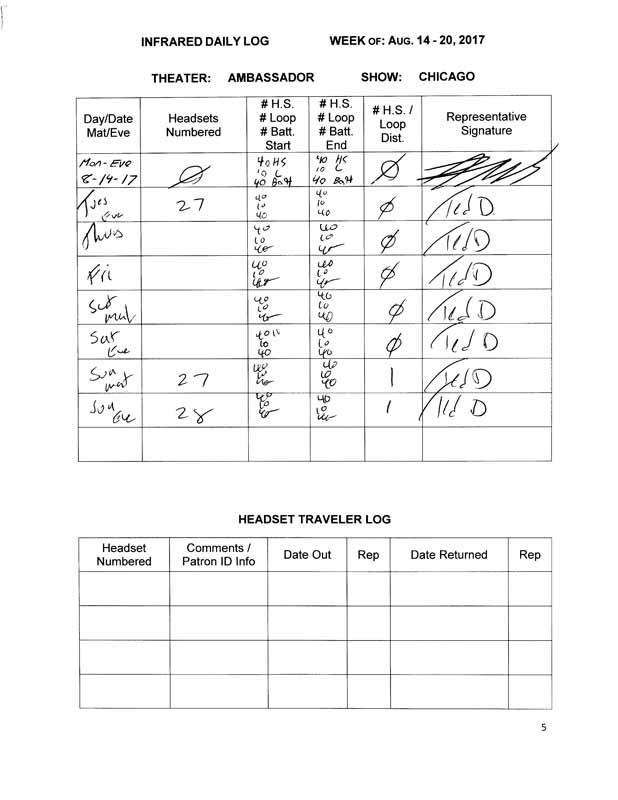 INFRARED DAILY LOG WEEK OF: AUG. 14 - 20, 2017
THEATER: AMBASSADOR SHOW: CHICAGO
Day/Date
Mat/Eve
Headsets
Numbered
# H.S.
# Loop
# Batt.
Start
# H.S.
# Loop
# Batt.
End
# H.S. /
Loop
Dist.
Representative
Signature
Mon-Eve
8-14-17
Ø
40 HS
10 L
40 Batt
40 HS
10 L
40 Batt
Ø
Tues
Eve
27
40
10
40
40
10
40
Ø
Ted D.
Thurs
40
10
40
40
10
40
Ø
Ted D
Fri
40
10
40
40
10
40
Ø
Ted D
Sat
mat
40
10
40
40
10
40
Ø
Ted D
Sat
Eve
40
10
40
40
10
40
Ø
Ted D
Sun
mat
27
40
10
40
40
10
40
1
Ted D
Sun
Eve
28
40
10
40
40
10
40
1
Ted D
HEADSET TRAVELER LOG
Headset
Numbered
Comments /
Patron ID Info
Date Out
Rep
Date Returned
Rep
5